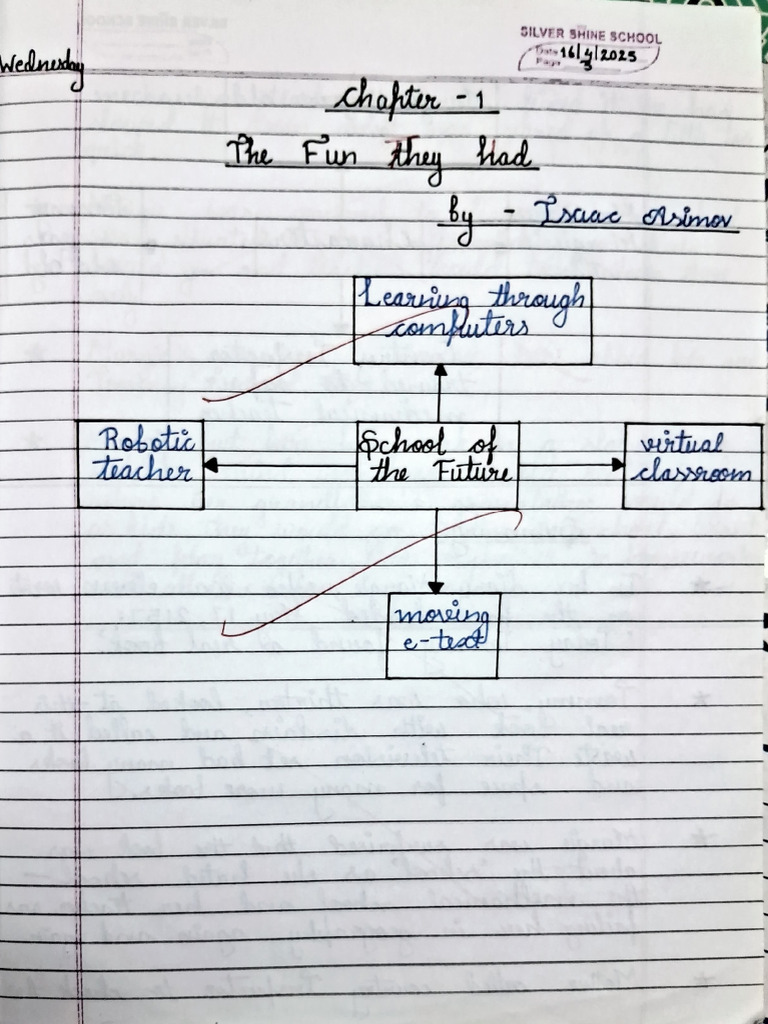 SILVER SHINE SCHOOL
Date 16/4/2025
Page 3
Wednesday
Chapter - 1
The Fun They Had
by - Isaac Asimov
Learning through
computers
Robotic
teacher
School of
the Future
virtual
classroom
moving
e-text